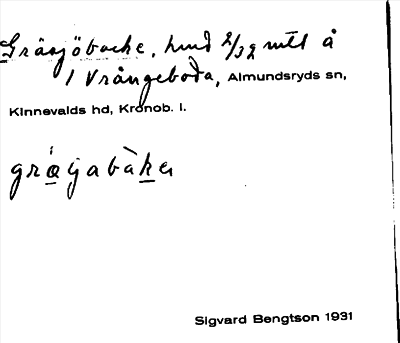 Gråsjöbacke, hmd 2/32 mtl å
1 Vrångeboda, Almundsryds sn,
Kinnevalds hd, Kronob. l.
Sigvard Bengtson 1931